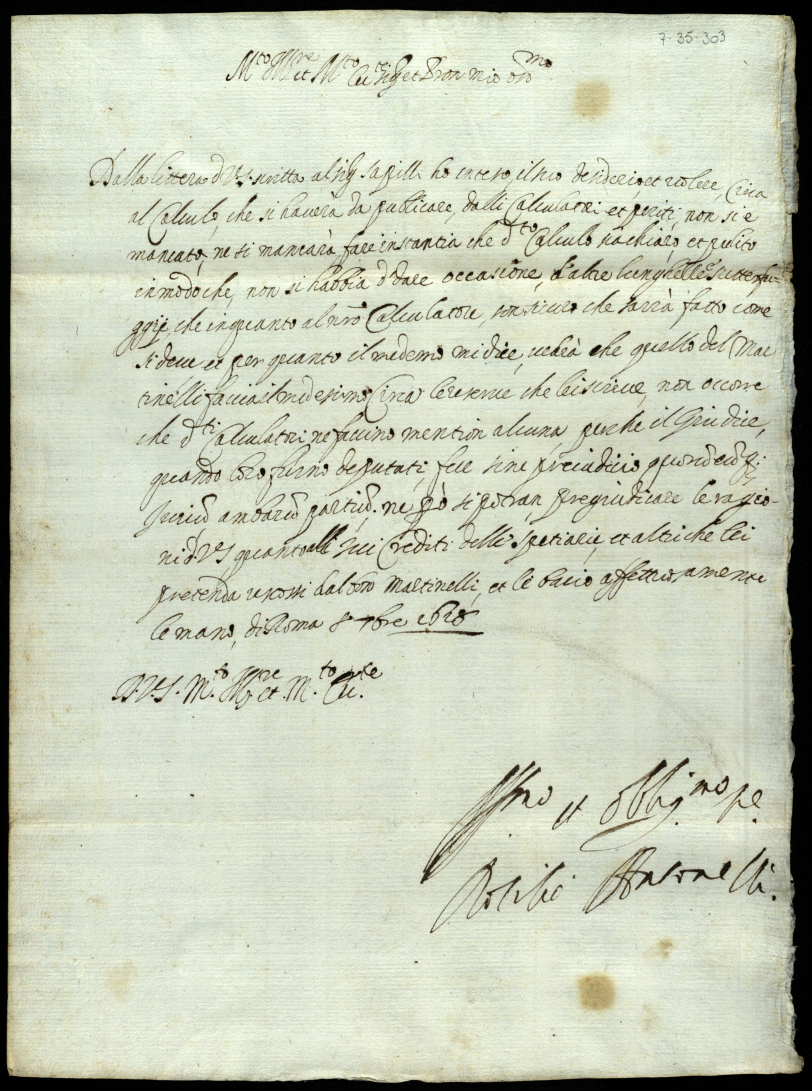 7-35-303
M.to Ill.re et M.to Ecc.te Sig.r et Pron mio oss.mo
Dalla littera d V.S. scritta al sig.r ho inteso il suo desiderio, et volere, Circa
al Calculo, che si haverà da publicare, dalli Calculatori et periti, non si è
mancato, ne si mancarà, fare instantia che d.to Calculo sia chiaro, et pulito
in modo che, non si habbia d dare occasione, d'altre longhezze, sutterfu-
ggij, che in quanto al nro Calculatore, son sicuro che sarrà fatto come
si deve et per quanto il medemo mi dice, vedrà che quello del Mar
tinelli faccia il medesimo Circa le reserve che lei scrive, non occorre
che d.ti Calculatori ne faccino mention alcuna, perche il Giudice,
quando loro furno deputati, fece sine preiudicio
Jurium ambarum partium. ne però si potran pregiudicare le ragio-
ni d V.S. quanto alli suoi Crediti delle spetiarie, et altri che lei
pretenda dal Martinelli, et le bacio affettuosamente
le mano, di Roma 8 7bre 1628
D. V.S. M.to Ill.re et M.to Ecc.te
Aff.mo et obblig.mo se.
Antonelli.